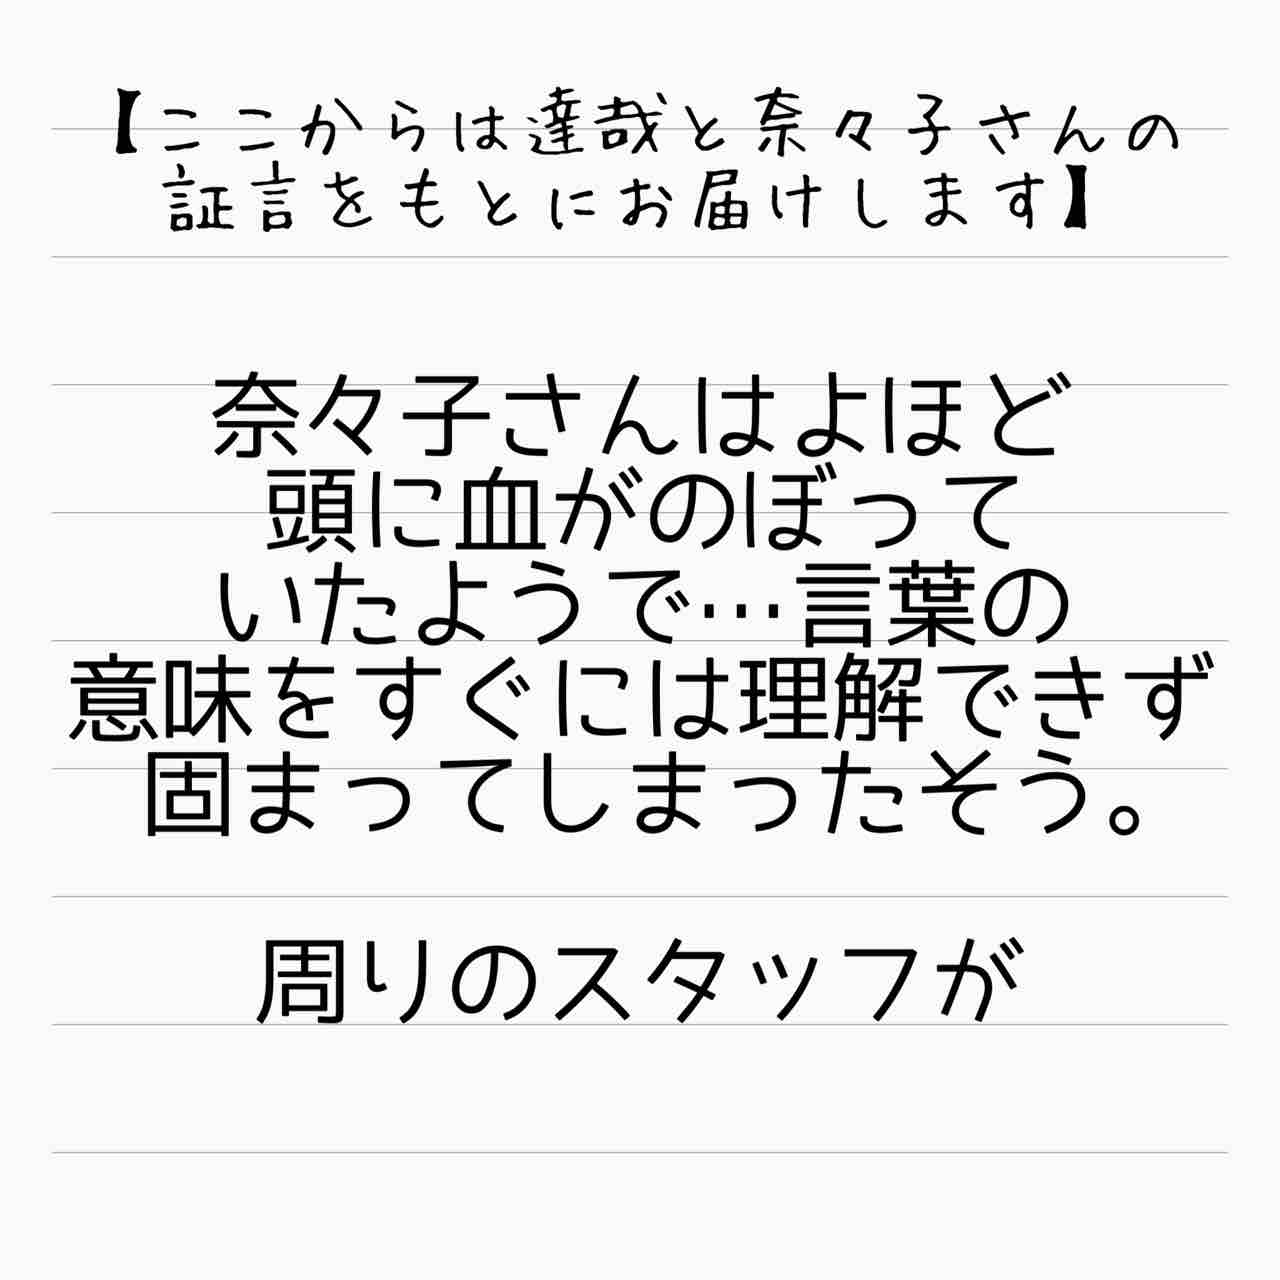 【ここからは達哉と奈々子さんの
証言をもとにお届けします】
奈々子さんはよほど
頭に血がのぼって
いたようで…言葉の
意味をすぐには理解できず
固まってしまったそう。
周りのスタッフが